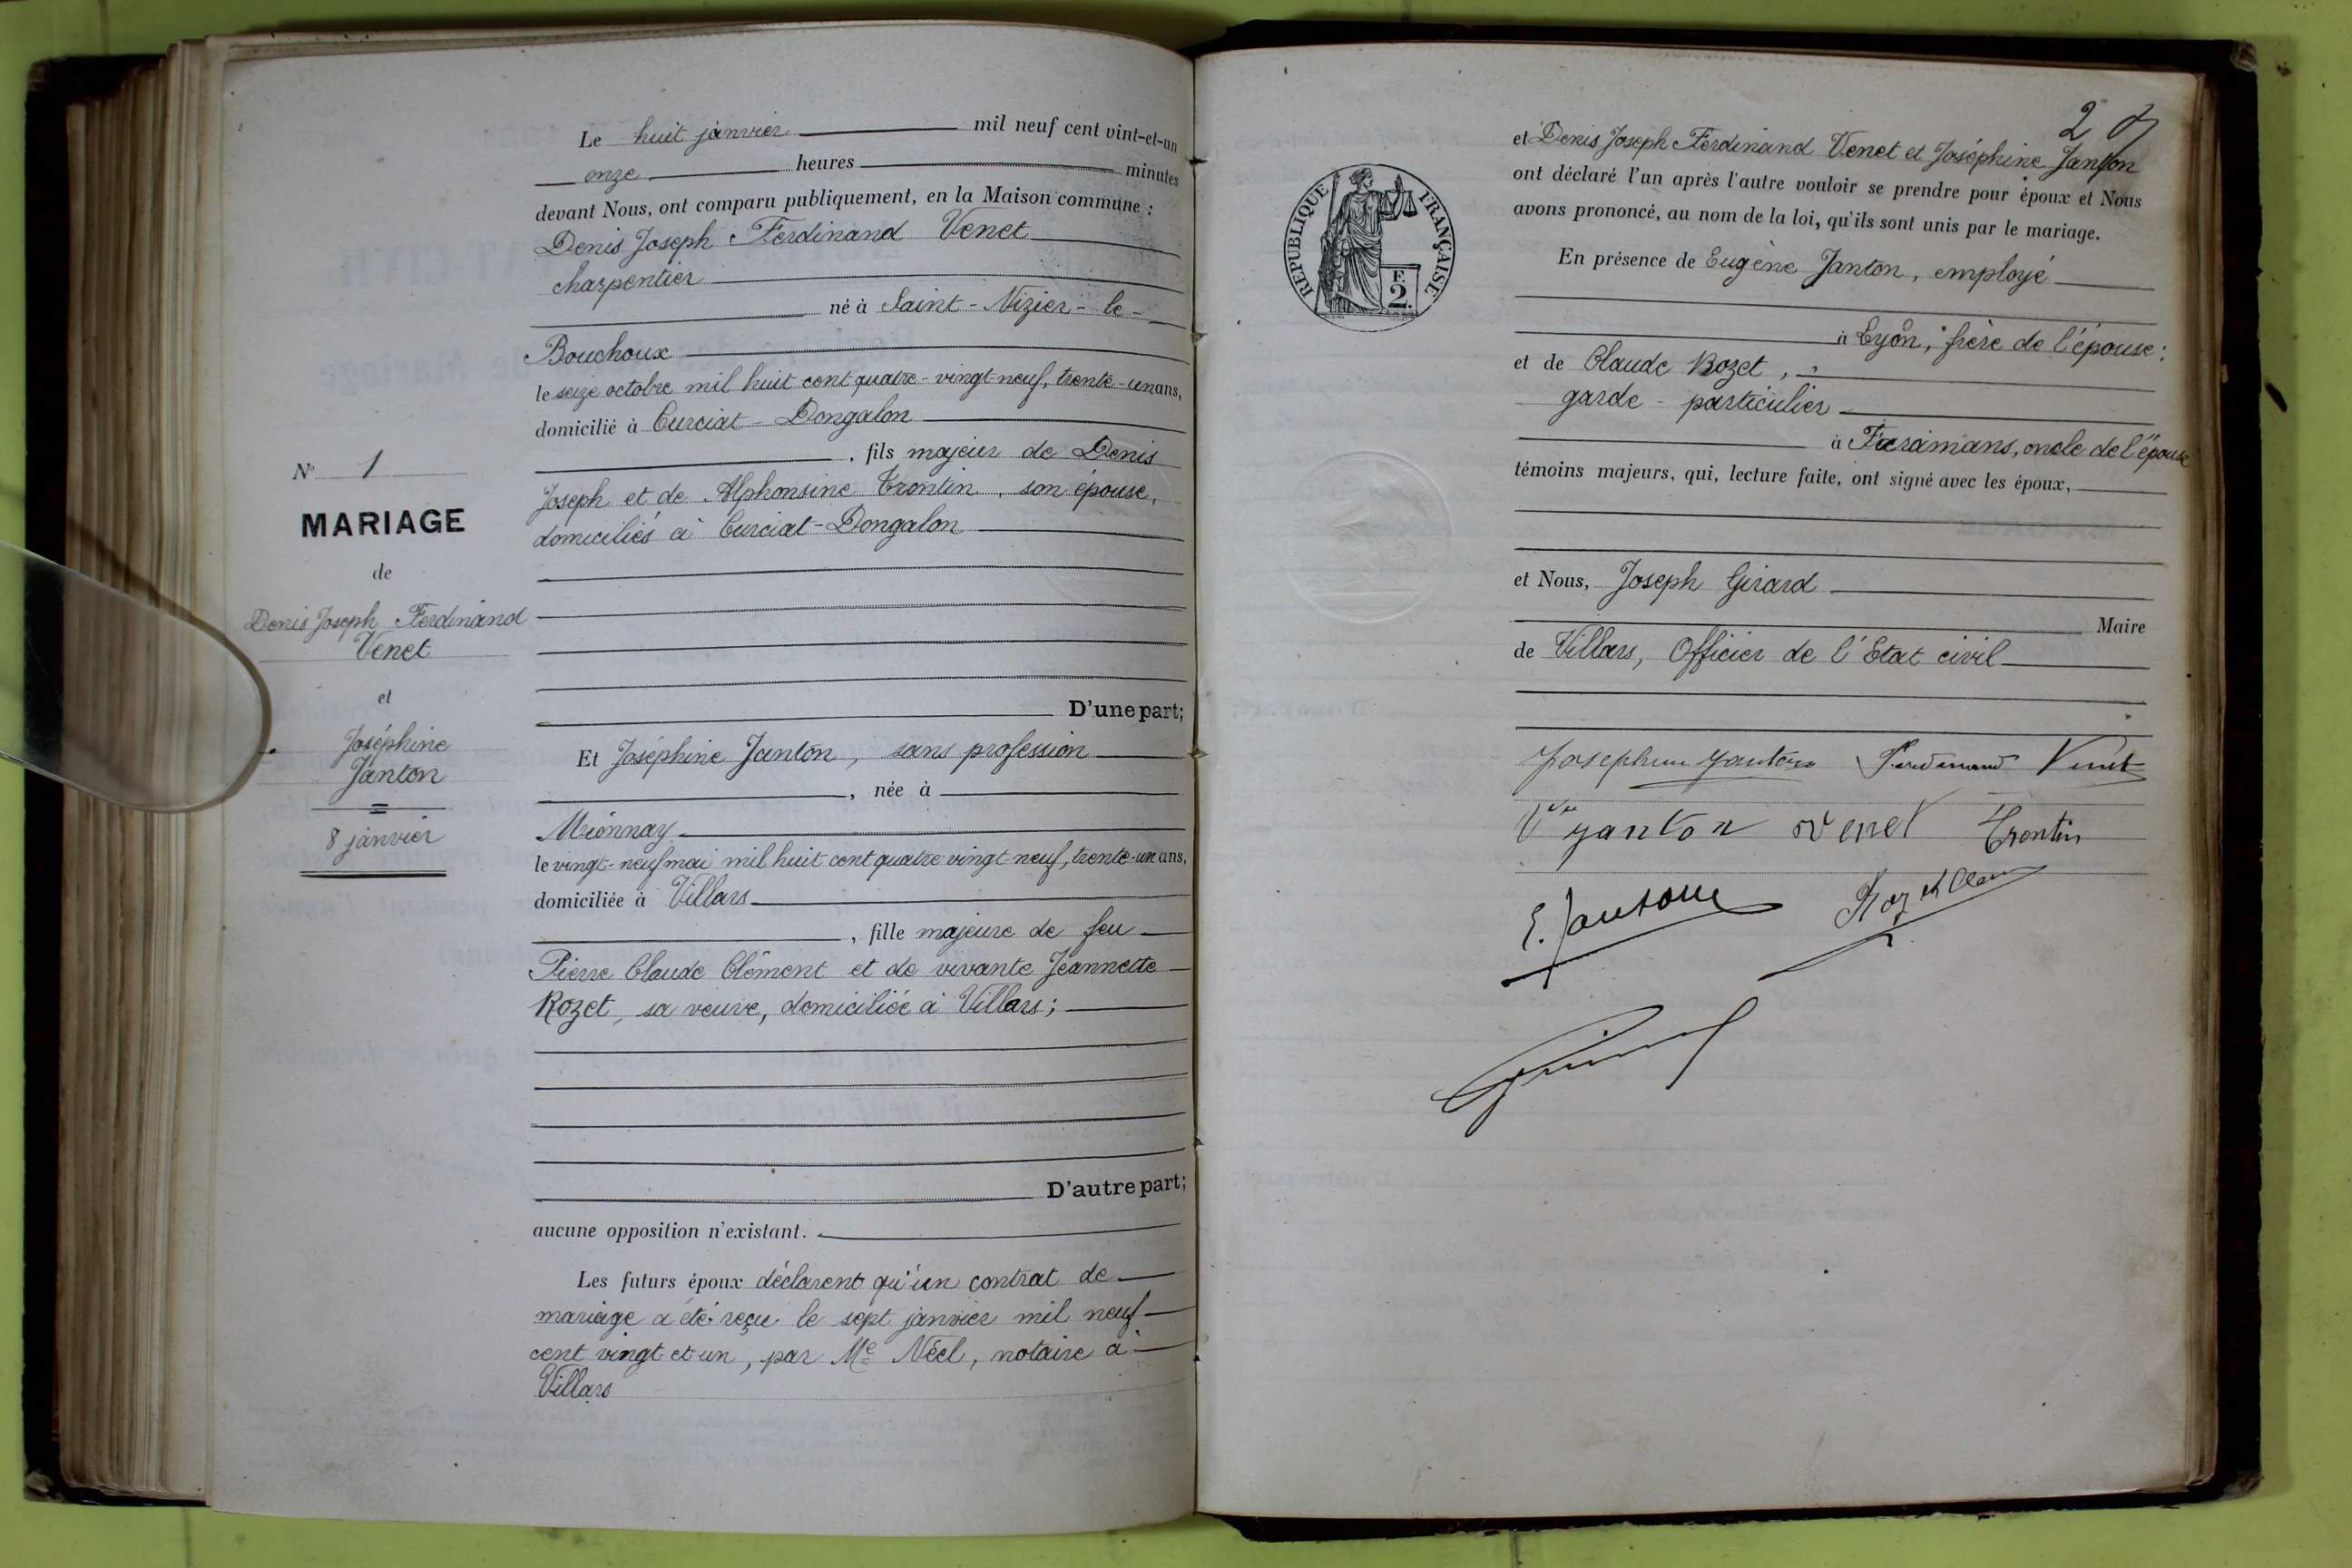 N° 1
MARIAGE
de
Denis Joseph Ferdinand
Venet
et
Joséphine
Janton
8 janvier
Le huit janvier mil neuf cent vint-et-un
onze heures minutes
devant Nous, ont comparu publiquement, en la Maison commune :
Denis Joseph Ferdinand Venet
charpentier
né à Saint-Nizier-le-
Bouchoux
le seize octobre mil huit cent quatre-vingt-neuf, trente-un ans,
domicilié à Curciat-Dongalon
, fils majeur de Denis
Joseph et de Alphonsine Trontin, son épouse,
domiciliés à Curciat-Dongalon
D'une part;
Et Joséphine Janton, sans profession
, née à
Mionnay
le vingt-neuf mai mil huit cent quatre vingt neuf, trente-un ans,
domiciliée à Villars
, fille majeure de feu
Pierre Claude Clément et de vivante Jeannette
Rozet, sa veuve, domiciliée à Villars;
D'autre part;
aucune opposition n'existant.
Les futurs époux déclarent qu'un contrat de
mariage a été reçu le sept janvier mil neuf
cent vingt et un, par Me Néel, notaire à
Villars
2
et Denis Joseph Ferdinand Venet et Joséphine Janton
ont déclaré l'un après l'autre vouloir se prendre pour époux et Nous
avons prononcé, au nom de la loi, qu'ils sont unis par le mariage.
En présence de Eugène Janton, employé
à Lyon, frère de l'épouse;
et de Claude Rozet,
garde-particulier
à Faramans, oncle de l'épouse
témoins majeurs, qui, lecture faite, ont signé avec les époux,
et Nous, Joseph Girard
Maire
de Villars, Officier de l'Etat civil
Josephine Janton Ferdinand Venet
Vve Janton Venet Trontin
E. Janton Rozet
RÉPUBLIQUE FRANÇAISE
F.
2.